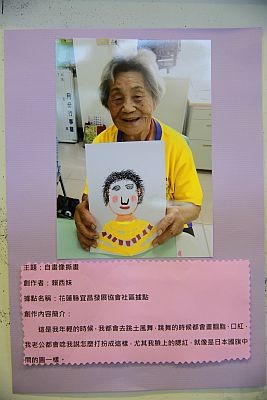 月份行事曆
主題：自畫像撕畫
創作者：賴西妹
據點名稱：花蓮縣宜昌發展協會社區據點
創作內容簡介：
這是我年輕的時候，我都會去跳土風舞，跳舞的時候都會畫胭脂、口紅，
我老公都會唸我說怎麼打扮成這樣，尤其我臉上的腮紅，就像是日本國旗中
間的圓一樣。